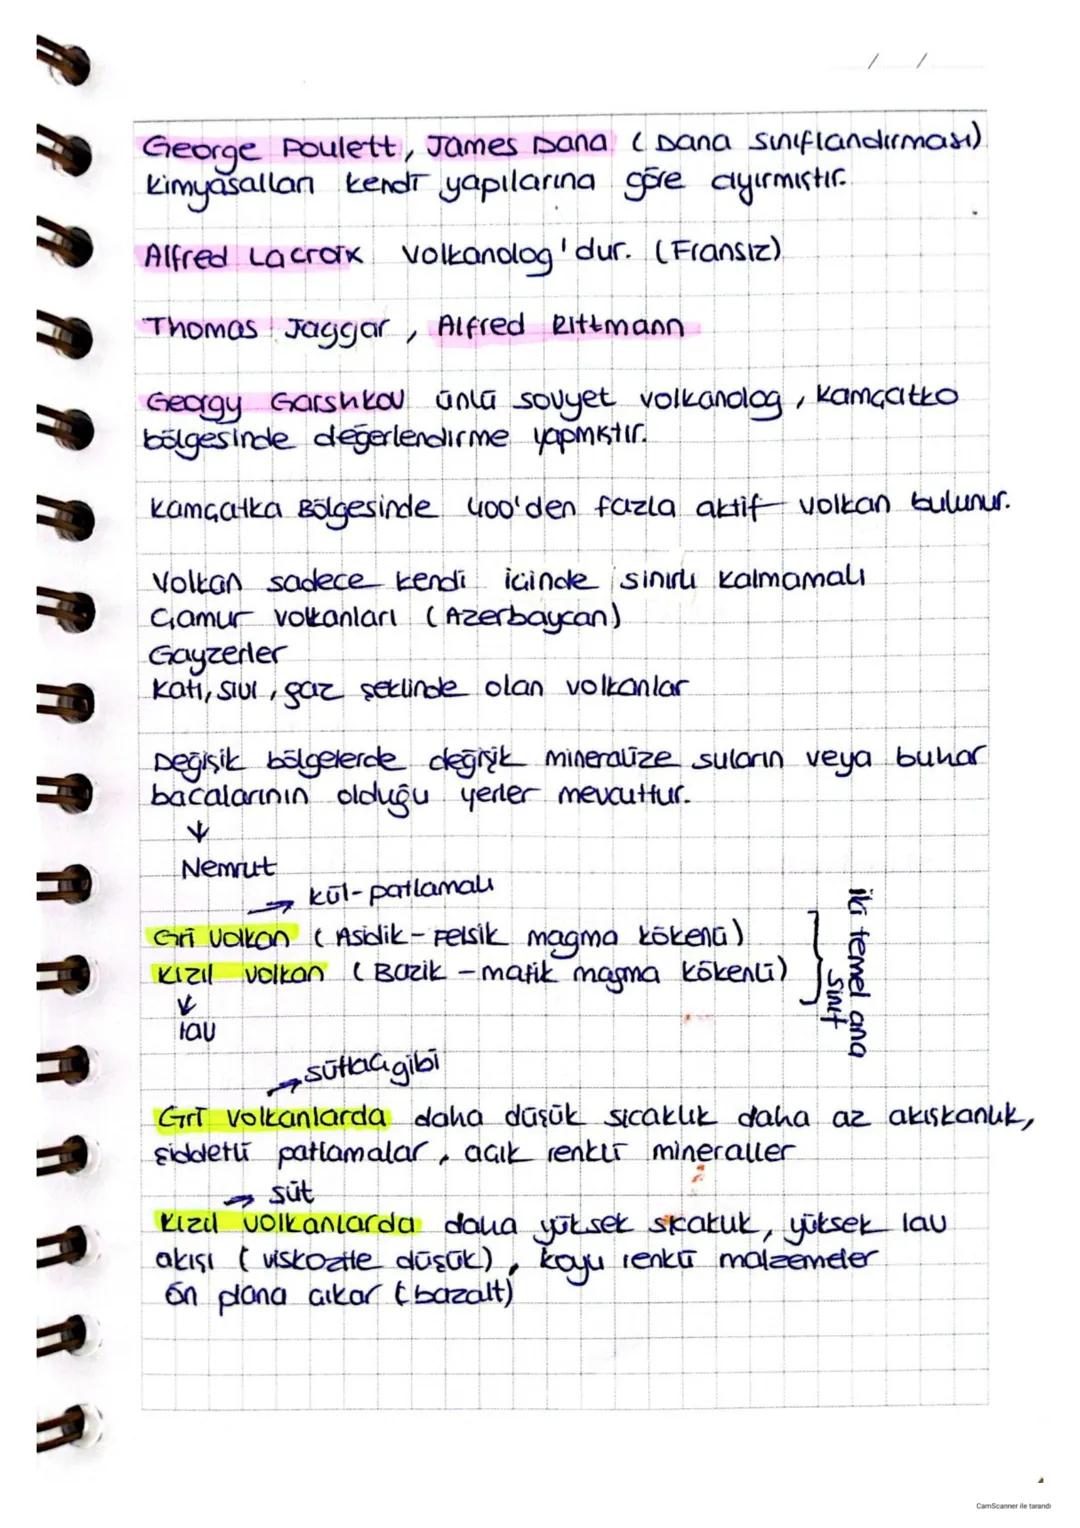 / /
George Poulett, James Dana (Dana sınıflandırması)
kimyasalları kendi yapılarına göre ayırmıştır.
Alfred Lacroix volkanolog'dur. (Fransız)
Thomas Jaggar, Alfred Rittmann
Georgy Garshkov ünlü sovyet volkanolog, kamçatko
bölgesinde değerlendirme yapmıştır.
Kamçatka Bölgesinde 400'den fazla aktif volkan bulunur.
Volkan sadece kendi içinde sınırlı kalmamalı
Çamur volkanları (Azerbaycan)
Gayzerler
Katı, sıvı, gaz şeklinde olan volkanlar
Değişik bölgelerde değişik mineralize suların veya buhar
bacalarının olduğu yerler mevcuttur.
↓
Nemrut
→ kül-patlamalı
Gri volkan (Asidik-Felsik magma kökenli)
Kızıl volkan (Bazik-mafik magma kökenli)
↓
lav
iki temel ana
sınıf
→ sütlaç gibi
Gri volkanlarda daha düşük sıcaklık daha az akışkanlık,
şiddetli patlamalar, açık renkli mineraller
→ süt
Kızıl volkanlarda daha yüksek sıcaklık, yüksek lav
akışı (viskozite düşük), koyu renkli malzemeler
ön plana çıkar (bazalt)
CamScanner ile tarandı